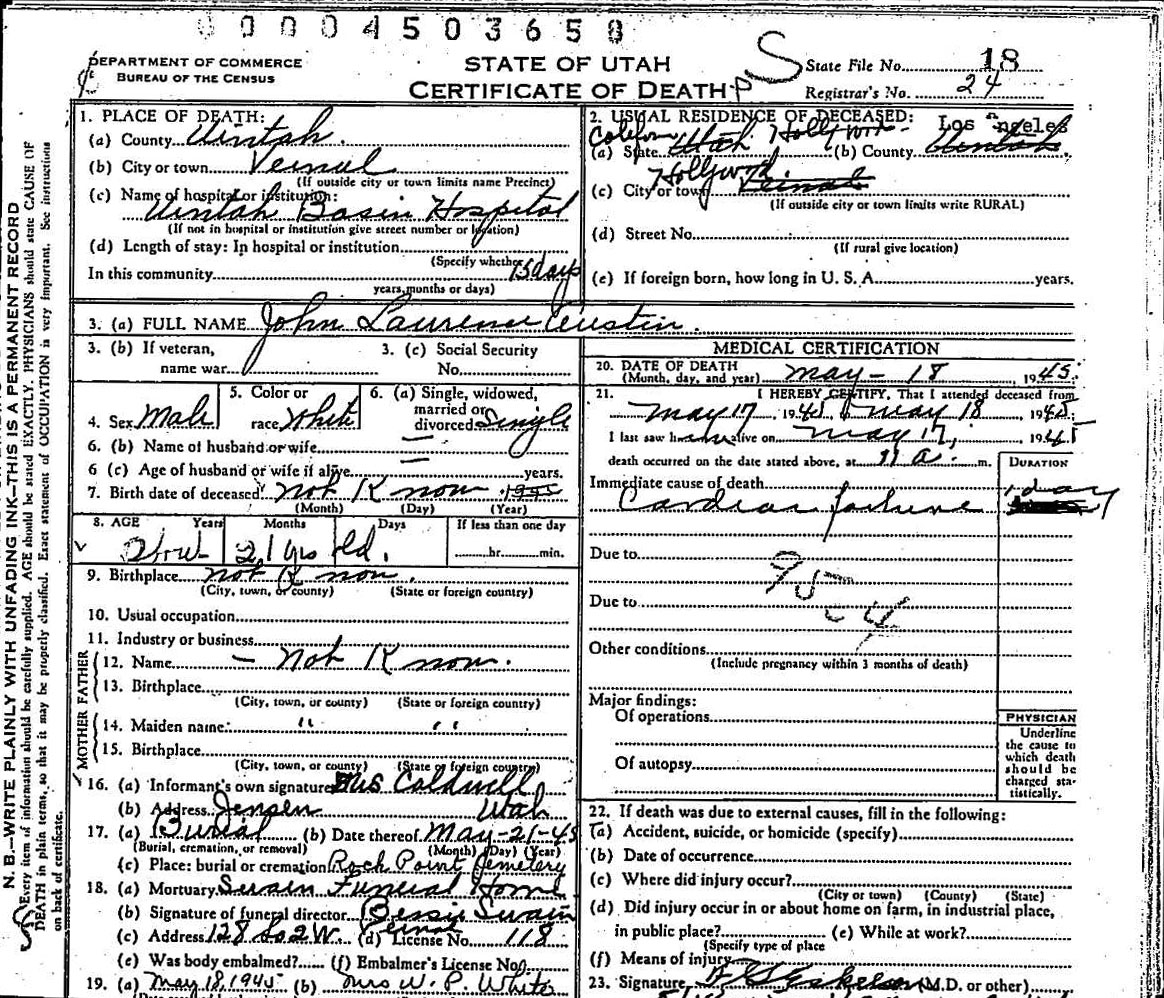 0000450365 8
DEPARTMENT OF COMMERCE
BUREAU OF THE CENSUS
STATE OF UTAH
CERTIFICATE OF DEATH
State File No. 18
Registrar's No. 24
N. B.—WRITE PLAINLY WITH UNFADING INK—THIS IS A PERMANENT RECORD
Every item of information should be carefully supplied. AGE should be stated EXACTLY. PHYSICIANS should state CAUSE OF
DEATH in plain terms, so that it may be properly classified. Exact statement of OCCUPATION is very important. See instructions
on back of certificate.
1. PLACE OF DEATH:
(a) County Uintah
(b) City or town Vernal
(If outside city or town limits name Precinct)
(c) Name of hospital or institution:
Uintah Basin Hospital
(If not in hospital or institution give street number or location)
(d) Length of stay: In hospital or institution
(Specify whether
In this community 15 days
years, months or days)
2. USUAL RESIDENCE OF DECEASED: Los Angeles
(a) State Utah Hollywood (b) County Uintah
Hollywood
(c) City or town Vernal
(If outside city or town limits write RURAL)
(d) Street No.
(If rural give location)
(e) If foreign born, how long in U. S. A. years.
3. (a) FULL NAME John Laurence Austin
3. (b) If veteran,
name war
3. (c) Social Security
No.
4. Sex Male
5. Color or
race White
6. (a) Single, widowed,
married or
divorced Single
6. (b) Name of husband or wife
6 (c) Age of husband or wife if alive years.
7. Birth date of deceased Not Know
(Month) (Day) (Year)
8. AGE Years Months Days If less than one day
21 yrs old. hr. min.
9. Birthplace not Know.
(City, town, or county) (State or foreign country)
10. Usual occupation
11. Industry or business
FATHER
12. Name — Not Know.
13. Birthplace
(City, town, or county) (State or foreign country)
MOTHER
14. Maiden name: " "
15. Birthplace
(City, town, or county) (State or foreign country)
16. (a) Informant's own signature Mrs Caldwell
(b) Address Jensen Utah
17. (a) Burial (b) Date thereof May-21-45
(Burial, cremation, or removal) (Month) (Day) (Year)
(c) Place: burial or cremation Rock Point Cemetery
18. (a) Mortuary Swain Funeral Home
(b) Signature of funeral director Bessie Swain
(c) Address 128 So 2 W. Vernal (d) License No. 118
(e) Was body embalmed? (f) Embalmer's License No.
19. (a) May 18, 1945 (b) Mrs W. P. White
MEDICAL CERTIFICATION
20. DATE OF DEATH
(Month, day, and year) May - 18 1945
21. I HEREBY CERTIFY, That I attended deceased from
May 17 1945 May 18 1945
I last saw him alive on May 17, 1945
death occurred on the date stated above, at 11 a. m.
DURATION
Immediate cause of death
Cardiac failure 1 day
Due to
Due to
95-4
Other conditions
(Include pregnancy within 3 months of death)
Major findings:
Of operations
Of autopsy
PHYSICIAN
Underline
the cause to
which death
should be
charged sta-
tistically.
22. If death was due to external causes, fill in the following:
(a) Accident, suicide, or homicide (specify)
(b) Date of occurrence
(c) Where did injury occur?
(City or town) (County) (State)
(d) Did injury occur in or about home on farm, in industrial place,
in public place? (e) While at work?
(Specify type of place
(f) Means of injury
23. Signature (M.D. or other)